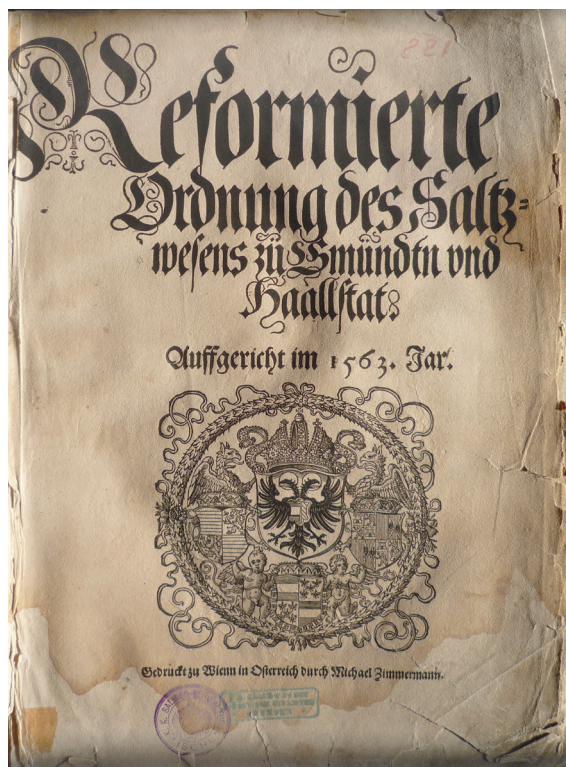 221
Reformierte
Ordnung des Saltz-
wesens zů Gmůndtn vnd
Haallstat:
Auffgericht im 1563. Jar.
Gedruckt zu Wienn in Osterreich durch Michael Zimmermann.